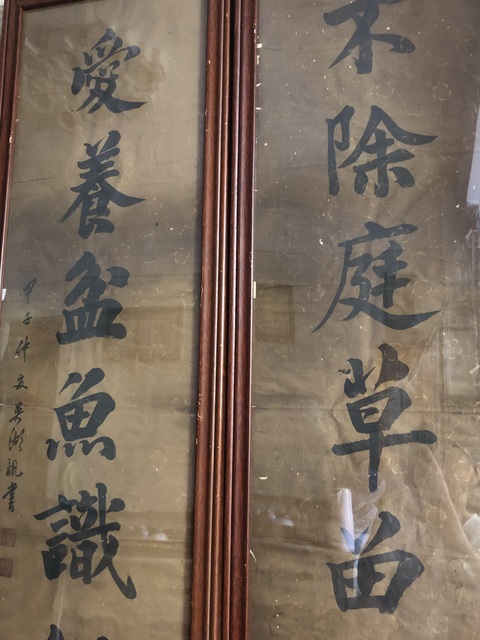 不除庭草留
愛養盆魚識
甲子仲夏吳湖帆書